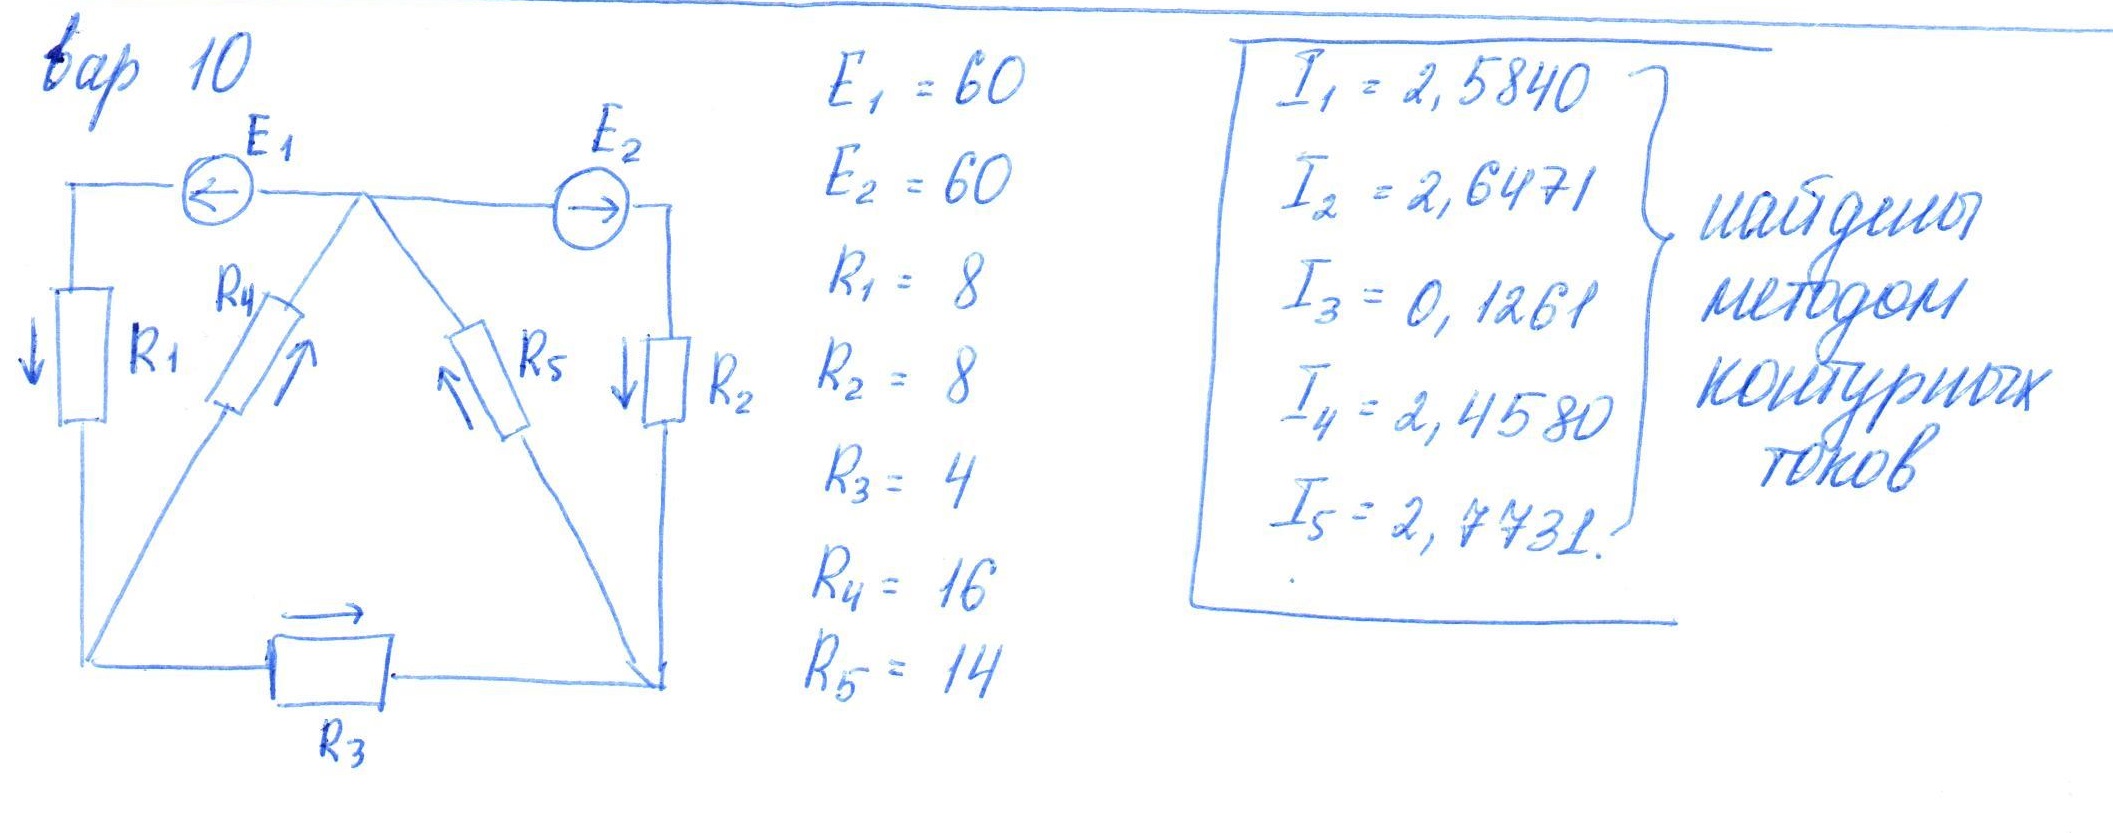 вар 10
E1
E2
R1
R4
R5
R2
R3
E1 = 60
E2 = 60
R1 = 8
R2 = 8
R3 = 4
R4 = 16
R5 = 14
I1 = 2,5840
I2 = 2,6471
I3 = 0,1261
I4 = 2,4580
I5 = 2,7731.
найдены
методом
контурных
токов